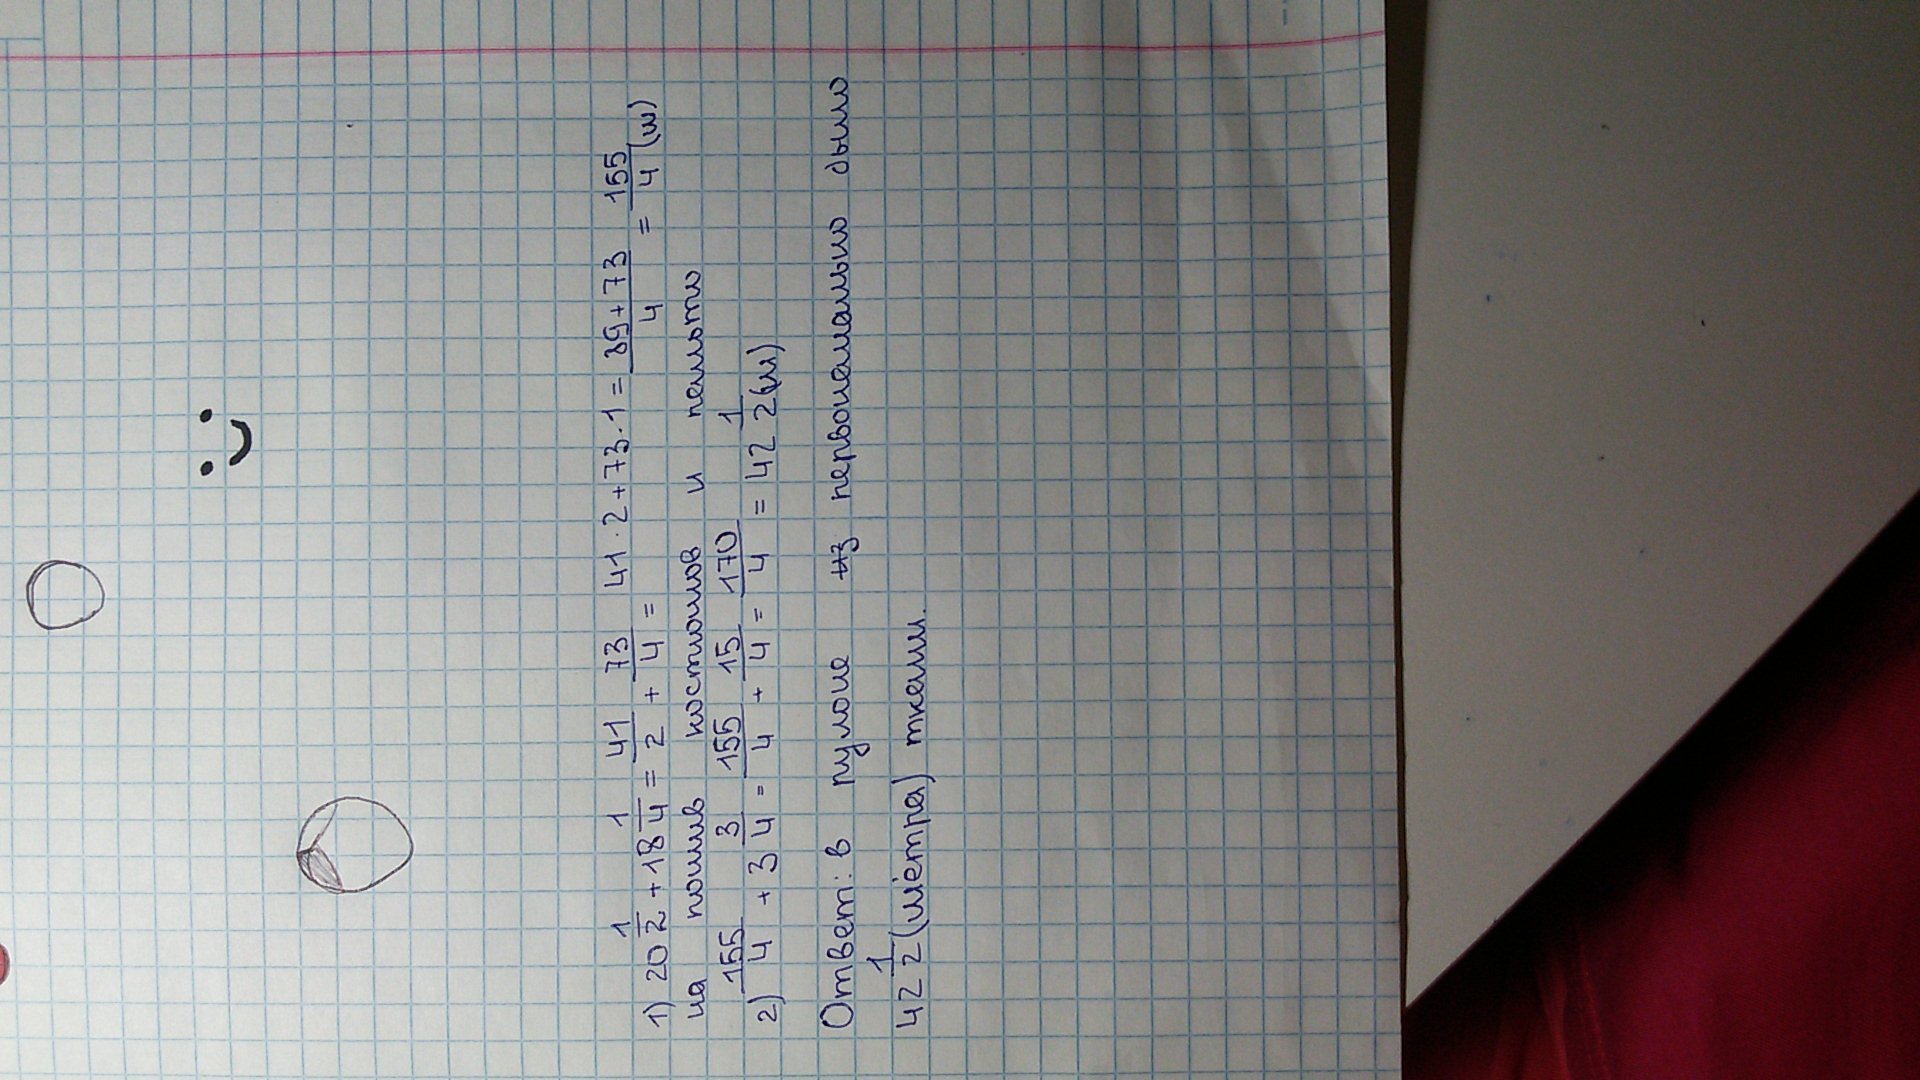 1) 20 1/2 + 18 1/4 = 41/2 + 73/4 = 41 · 2 + 73 · 1 = 89 + 73/4 = 155/4 (м)
на пошив костюмов и пальто
2) 155/4 + 3 3/4 = 155/4 + 15/4 = 170/4 = 42 1/2 (м)
Ответ: в рулоне из первоначально было
42 1/2 (метра) ткани.